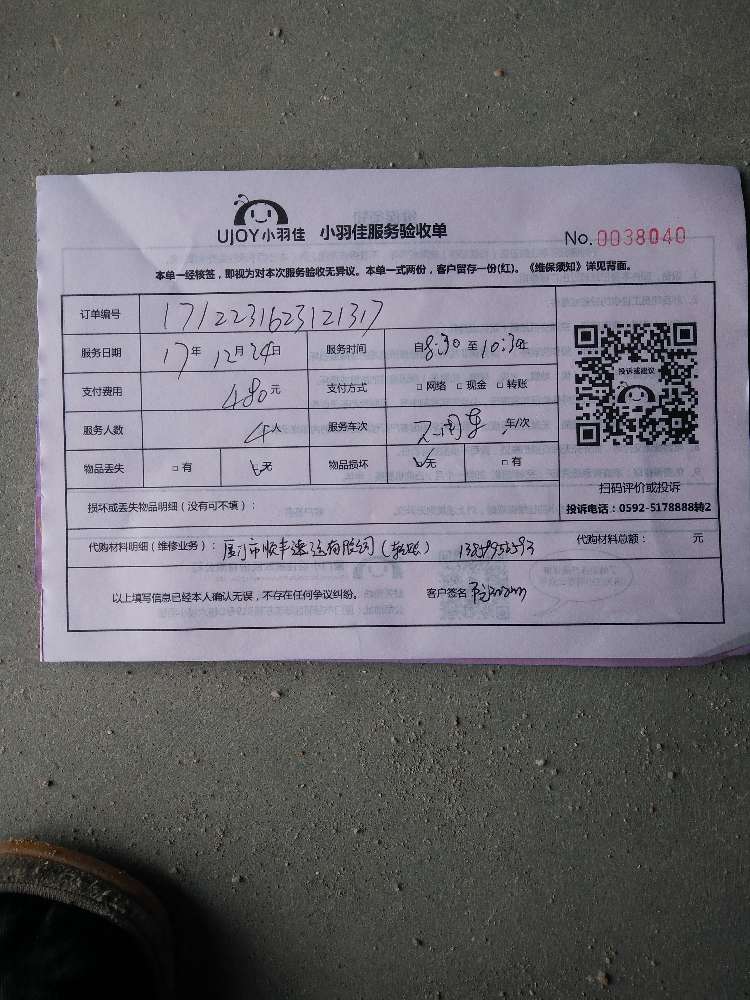 UJOY小羽佳 小羽佳服务验收单
No. 0038040
本单一经核签，即视为对本次服务验收无异议。本单一式两份，客户留存一份(红)。《维保须知》详见背面。
订单编号 1712231623121317
服务日期 17年12月24日 服务时间 自8:30至10:30
支付费用 480元 支付方式 □网络 □现金 □转账
服务人数 4人 服务车次 车/次
物品丢失 □有 ☑无 物品损坏 ☑无 □有
投诉或建议
扫码评价或投诉
投诉电话：0592-5178888转2
损坏或丢失物品明细（没有可不填）：
代购材料明细（维修业务）：厦门市顺丰速运有限公司 代购材料总额： 元
以上填写信息已经本人确认无误，不存在任何争议纠纷。 客户签名